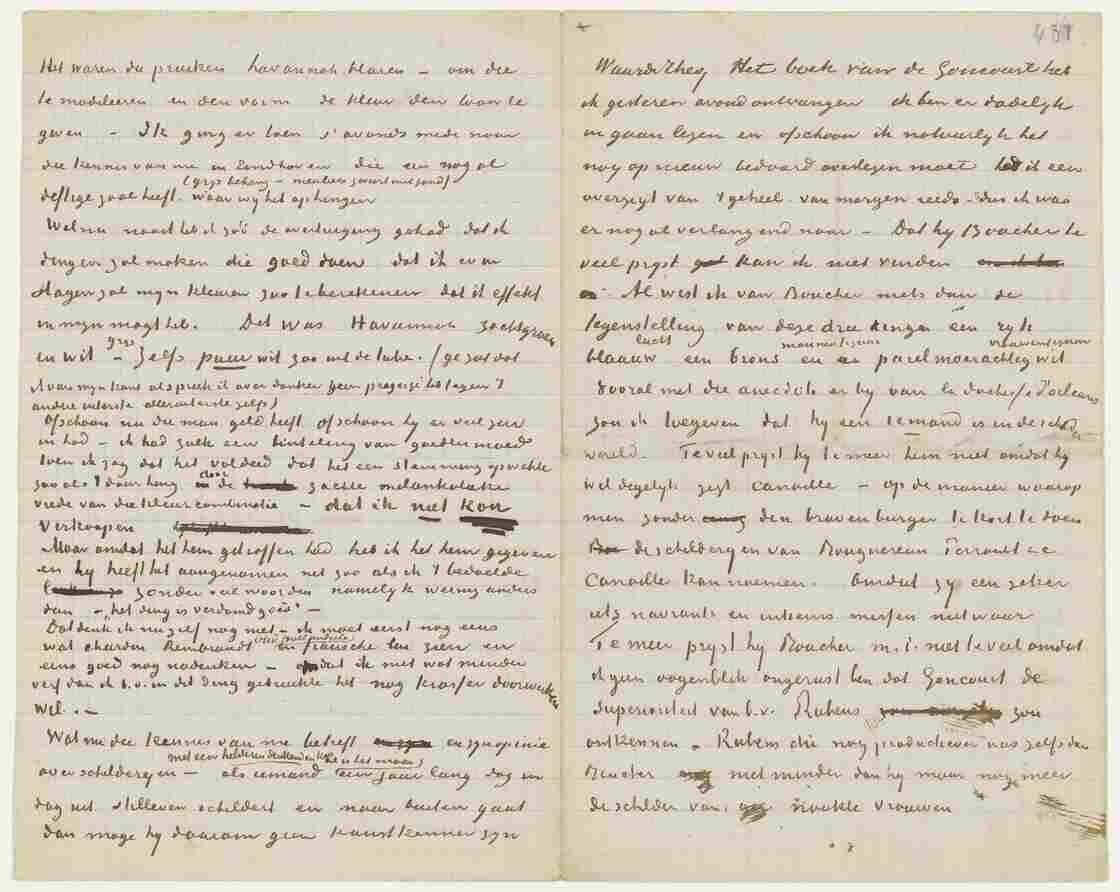 Het waren du pruikens havannah blaren – om die
te modeleeren en den vorm de kleur den toon te
geven – Ik ging er toen s'avonds mede naar
die kennis van me in Eindhoven die een nog al
(grijs behang – meubels zwart met goud)
deftige zaal heeft. waar wy het ophingen
Welnu nooit heb ik zóó de overtuiging gehad dat ik
dingen zal maken die goed doen dat ik er in
slagen zal myn kleuren zoo te berekenen dat ik effekt
in myn magt heb. Dit was Havannah zachtgroen
grys
en wit – zelfs puur wit zoo uit de tube. (ge ziet dat
ik van myn kant al spreek ik over donker geen prejugé heb tegen 't
andere uiterste alleruiterste zelfs)
Ofschoon nu die man geld heeft ofschoon hy er veel zin
in had – ik had zoek een tinteling van goedermoeds
toen ik zag dat het voldeed dat het een stemming opwekte
door
zoo als 't daar hing in de zachte melankolieke
vrede van die kleurcombinatie – dat ik niet kon
verkoopen
Maar omdat het hem getroffen had heb ik het hem gegeven
en hy heeft het aangenomen net zoo als ik 't bedoelde
zonder veel woorden namelyk weinig anders
dan – "het ding is verdomd goed" –
Dat denk ik nu zelf nog niet – ik moet eerst nog eens
wat chardin Rembrandt en fransche zien en
eens goed nog nadenken – omdat ik met wat minder
verf dan ik b.v. in dit ding gebruikte het nog krasser doorwerken
wil. –
Wat nu die kennis van me betreft en zyn opinie
met een helderen denkenden kop (en die is het maar)
over schilderyen – als iemand een jaar lang dag in
dag uit stilleven schildert en naar buiten gaat
dan moge hy daarom geen kunstkenner zyn
Waarde Theo, Het boek van de Goncourt heb
ik gisteren avond ontvangen ik ben er dadelyk
in gaan lezen en ofschoon ik natuurlyk het
nog op nieuw bedaard overlezen moet had ik een
overzigt van 't geheel van morgen reeds – dus ik was
er nog al verlangend naar – Dat hy Boucher te
veel pryst kan ik niet vinden
Al wist ik van Boucher niets dan de
tegenstelling van deze drie dingen een ryk
lucht mannenfiguur vrouwenfiguur
blaauw een brons en een parelmoerachtig wit
vooral met die anecdote er by van le duchesse d'orleans
zou ik toegeven dat hy een iemand is in de schilder
wereld. Te veel pryst hy te meer hem niet omdat hy
wel degelyk zegt canaille – op de manier waarop
men zonder den braven burger te kort te doen
de schilderyen van Bouguereau Perrault &c
canaille kan noemen. Omdat zy een zeker
iets navrants en intiems missen nietwaar
Te meer pryst hy Boucher m.i. niet te veel omdat
ik geen oogenblik ongerust ben dat Goncourt de
superioriteit van b.v. Rubens zou
ontkennen. Rubens die nog productiever was zelfs dan
Boucher niet minder dan hy maar nog meer
de schilder van naakte vrouwen